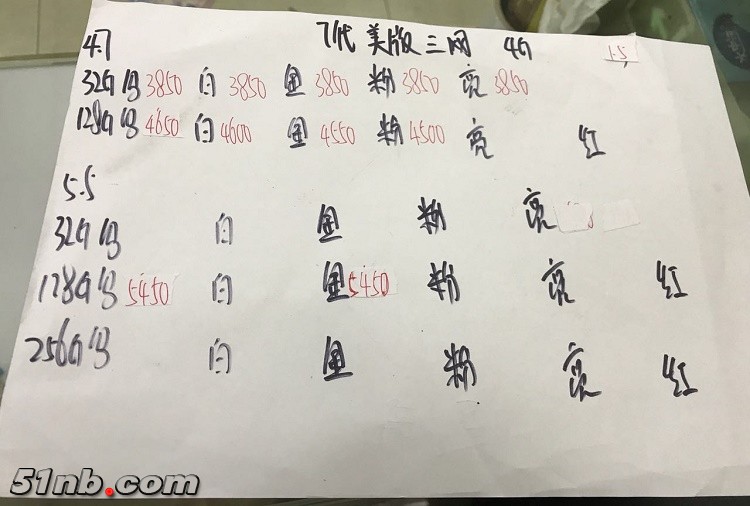 7代 美版三网 4G 1.5
4.7
32G 3850 白 3850 金 3850 粉 3850 亮 3850
128G 4650 白 4600 金 4550 粉 4500 亮 红
5.5
32G 白 金 粉 亮
128G 5450 白 金 5450 粉 亮 红
256G 白 金 粉 亮 红
51nb.com